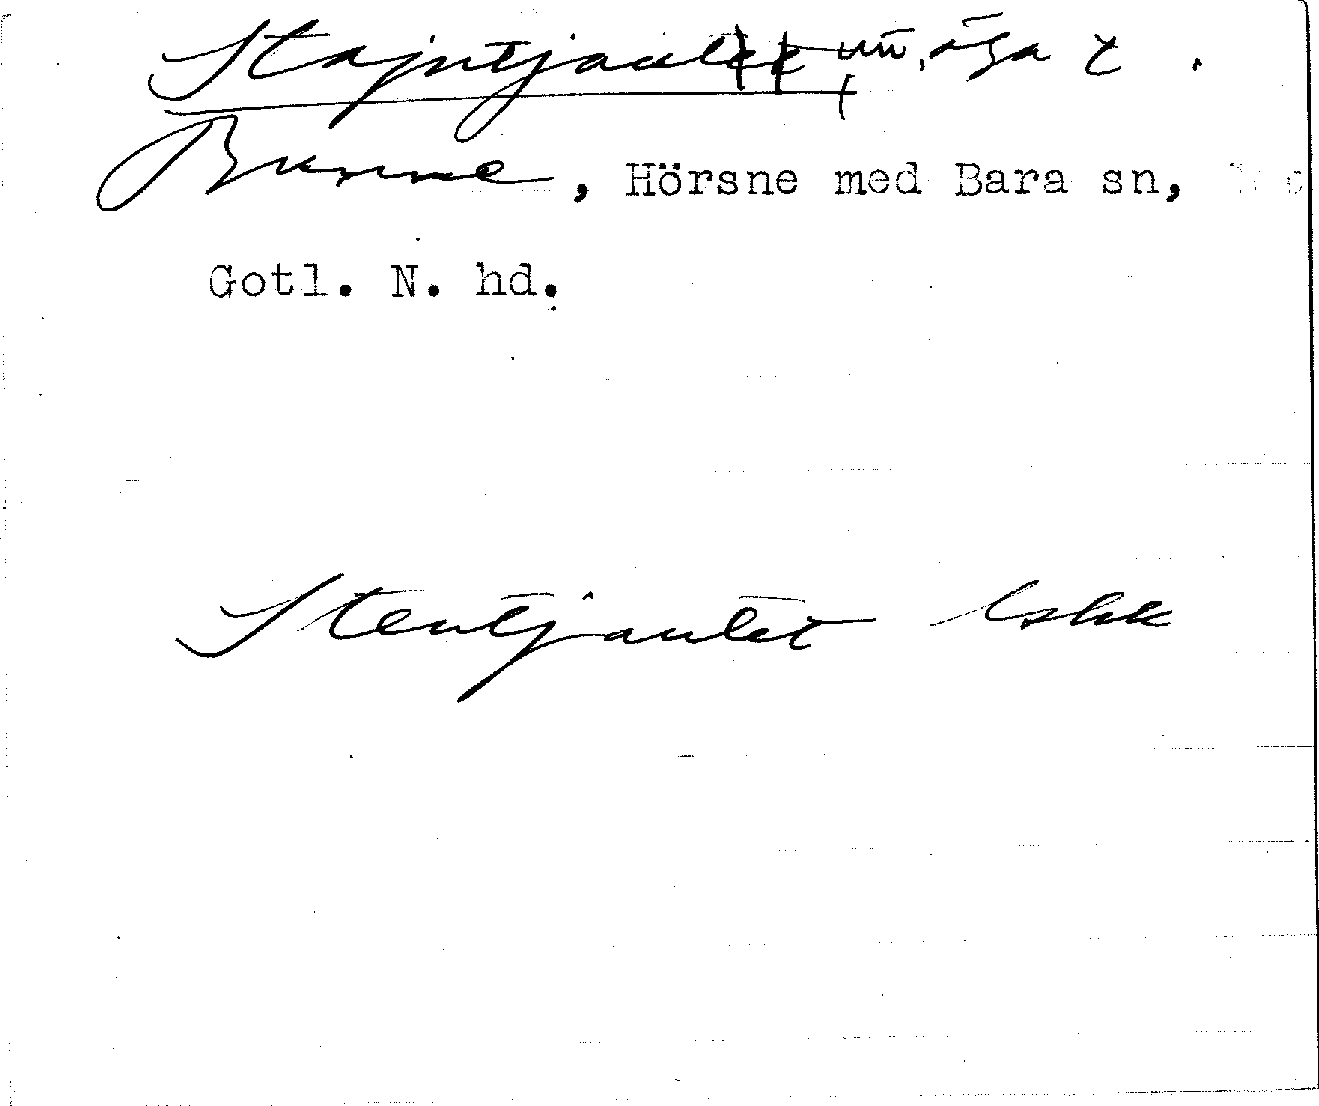 Stajntjaulet, äga i
Bunne, Hörsne med Bara sn,
Gotl. N. hd.
Stentjaulet